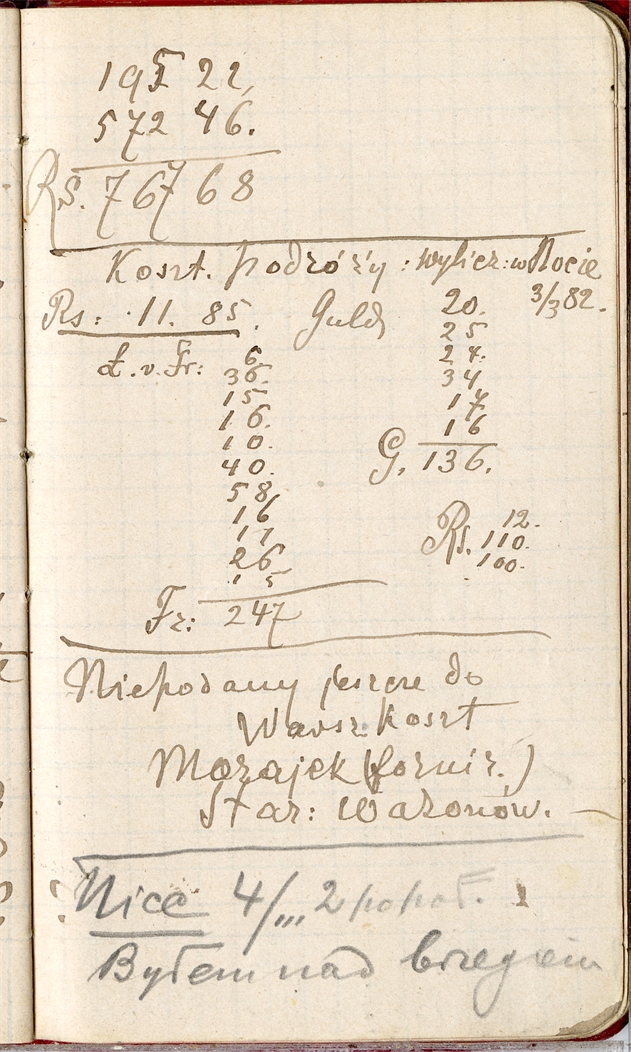 195 22,
572 46.
Rs. 767 68
Koszt. podróży: wylicz: w Nocie
Rs: 11. 85. Guld 20. 3/3 82.
25
Ł. v. Fr: 6. 24.
36. 34
15 17
16. 16
10. G. 136.
40.
58
16 12.
17 Rs. 110.
26 100.
15
Fr: 247
Niepodany jeszcze do
Warsz. koszt
Mozajek (fornir.)
Star: Wazonów.
Nice 4/III 2 popoł.
Byłem nad brzegiem